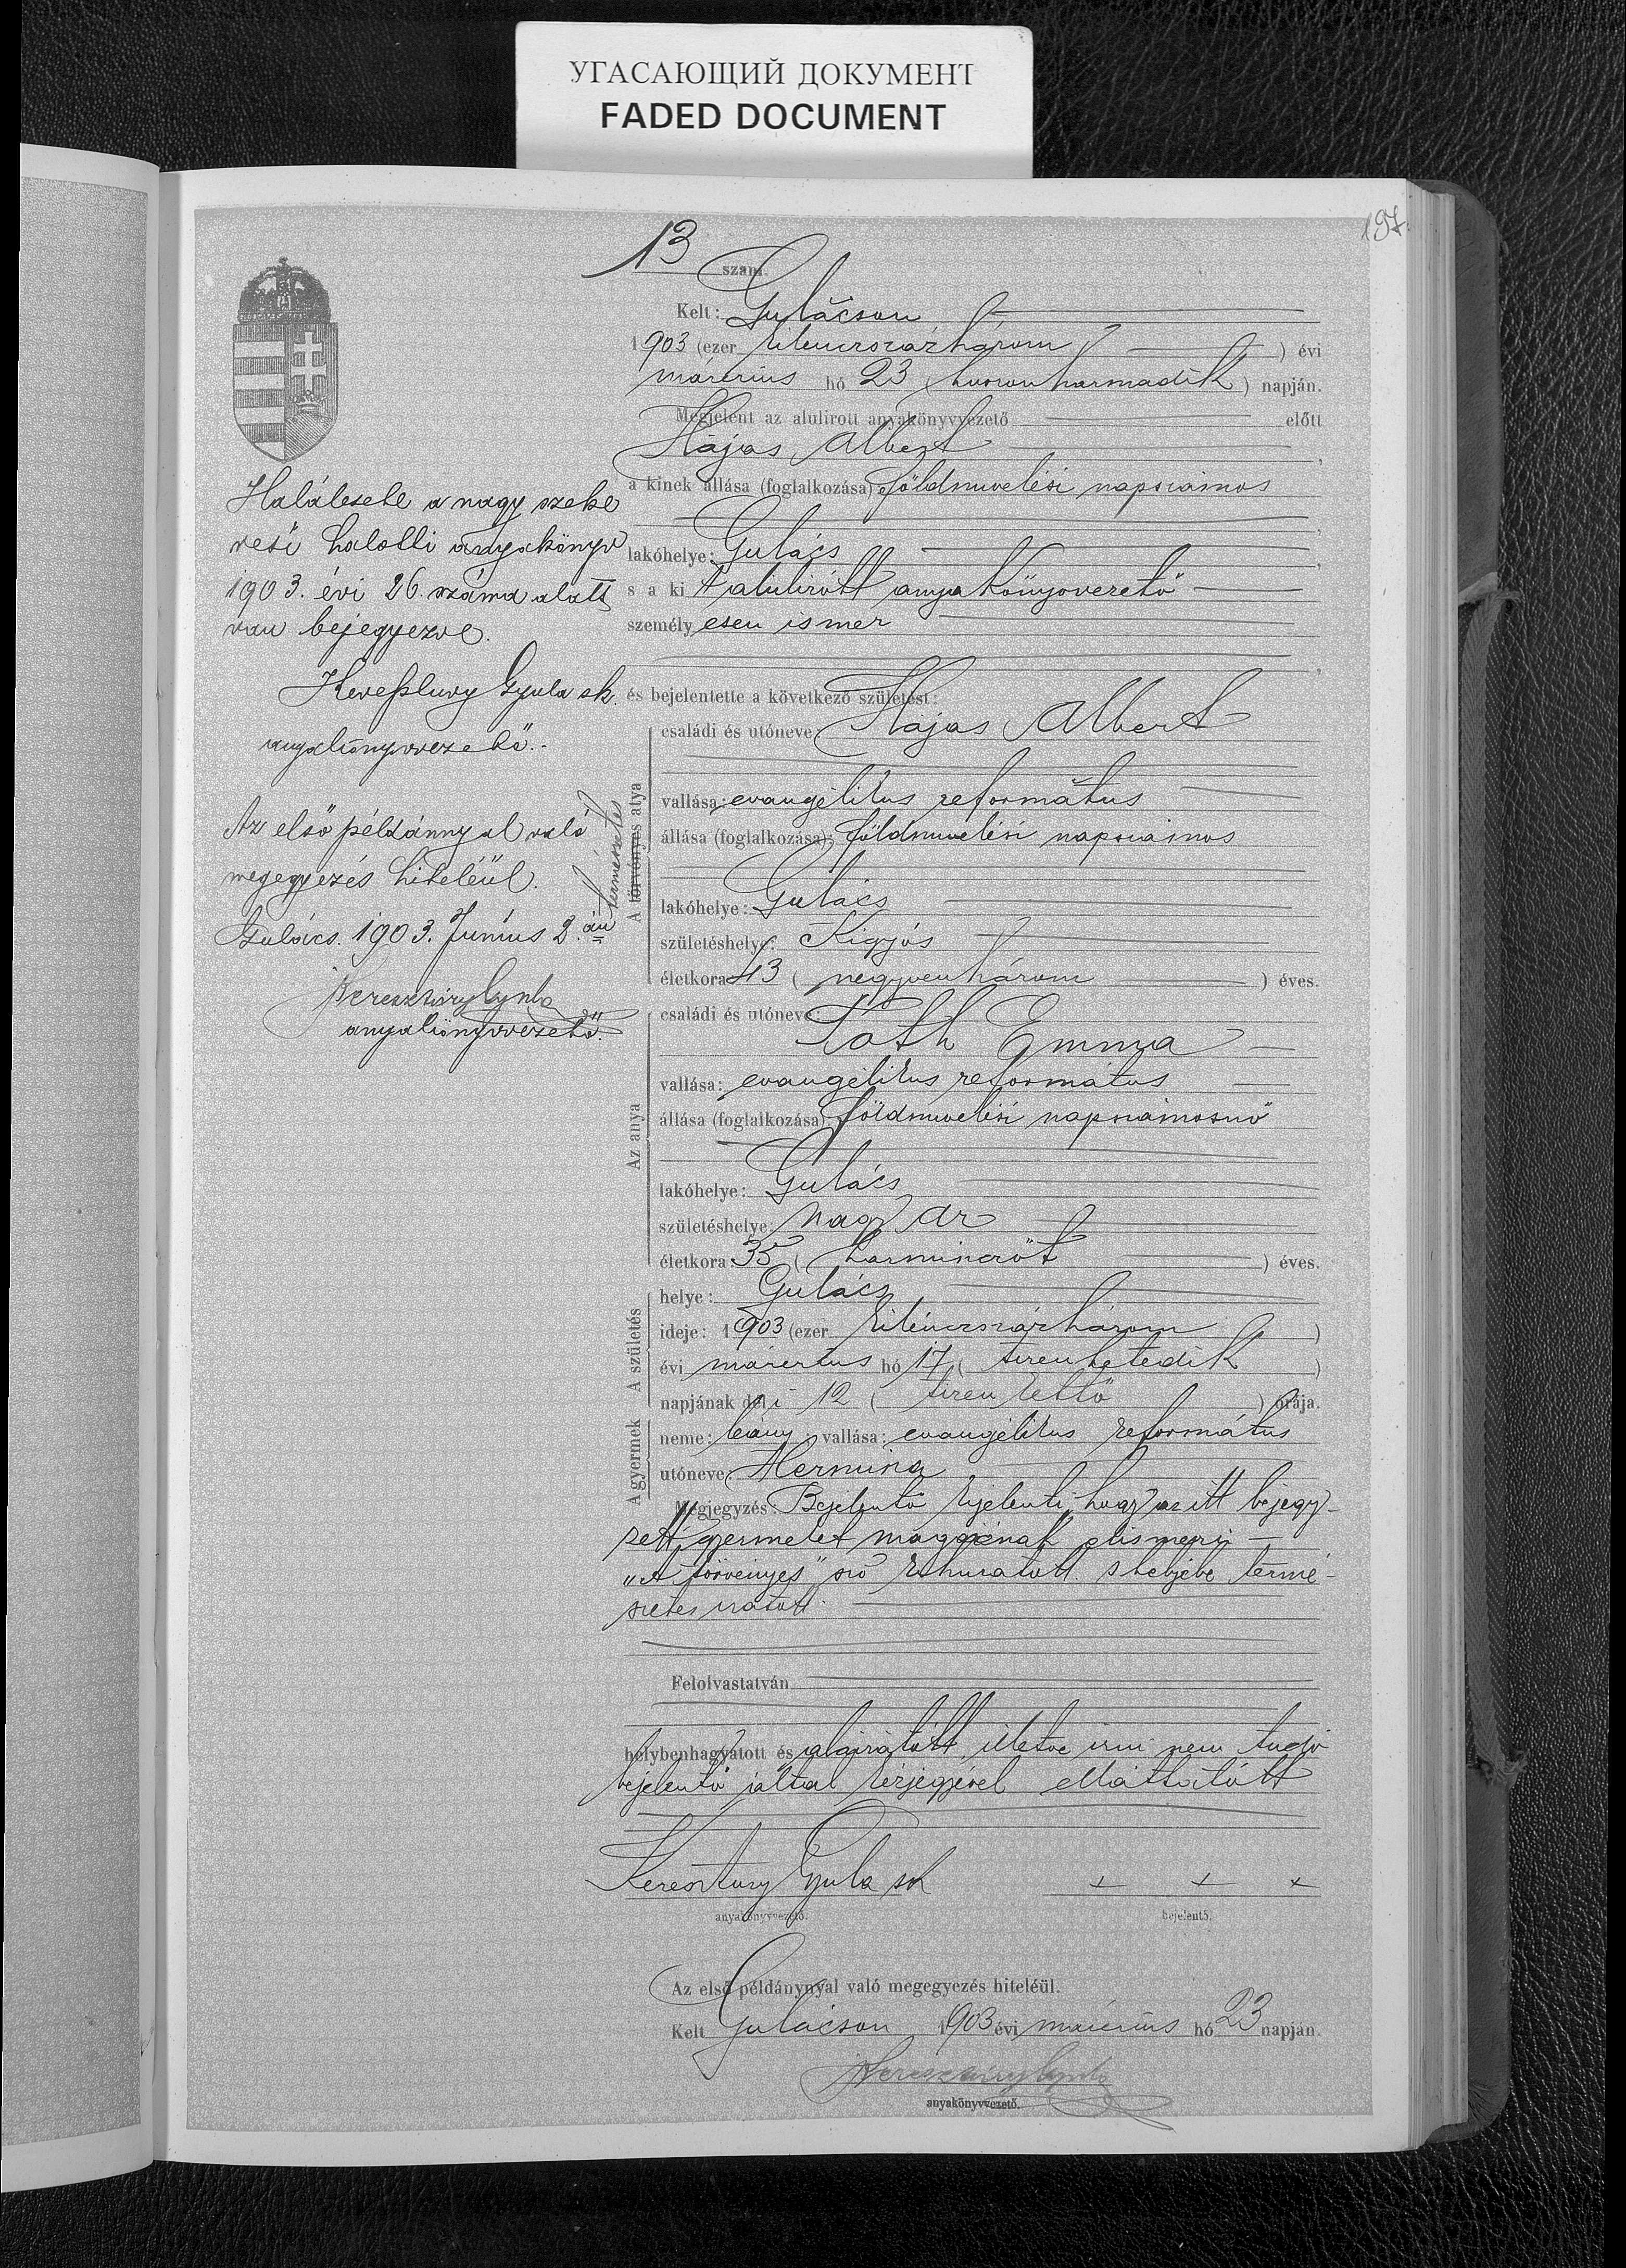 УГАСАЮЩИЙ ДОКУМЕНТ
FADED DOCUMENT
197.
13 szám.
Kelt: Gulácson
1903 (ezer kilenczszázhárom) évi
márczius hó 23 (huszonharmadik) napján.
Megjelent az alulirott anyakönyvvezető előtt
Hajas Albert,
a kinek állása (foglalkozása) földmivelési napszámos
lakóhelye: Gulács,
s a ki t alulirott anyakönyvvezető
személy esen ismer,
és bejelentette a következő születést:
A törvényes atya
természetes
családi és utóneve Hajas Albert
vallása: evangélikus református
állása (foglalkozása): földmivelési napszámos
lakóhelye: Gulács
születéshelye: Kigyós
életkora 43 (negyvenhárom) éves.
Az anya
családi és utóneve:
Toth Emma
vallása: evangélikus református
állása (foglalkozása): földmivelési napszámosnő
lakóhelye: Gulács
születéshelye: Nagy Ar
életkora: 35 (harminczöt) éves.
A születés
helye: Gulács
ideje: 1903 (ezer kilenczszázhárom)
évi márczius hó 17 (tizenhetedik)
napjának dél i 12 (tizenkettő) órája.
A gyermek
neme: leány; vallása: evangélikus református
utóneve: Hermina
Megjegyzés: Bejelentő kijelenti, hogy az itt bejegy-
zett gyermeket magáénak elismeri
„A törvényes" szó kihuzatott s helyébe termé-
szetes iratott.
Felolvastatván
helybenhagyatott és aláiratott, illetve irni nem tudó
bejelentő által kézjegyével elláttatott
Keresztury Gyula sk
+ + +
anyakönyvvezető.
bejelentő.
Az első példánynyal való megegyezés hiteléül.
Kelt Gulácson 1903 évi márczius hó 23 napján.
Keresztury Gyula
anyakönyvvezető.
Halálesete a nagy szeke
resi halotti anyakönyv
1903. évi 26. száma alatt
van bejegyezve.
Keresztury Gyula sk.
anyakönyvvezető.
Az első példánnyal való
megegyezés hiteléül.
Gulács. 1903. Június 2. án
Keresztury Gyula
anyakönyvvezető.